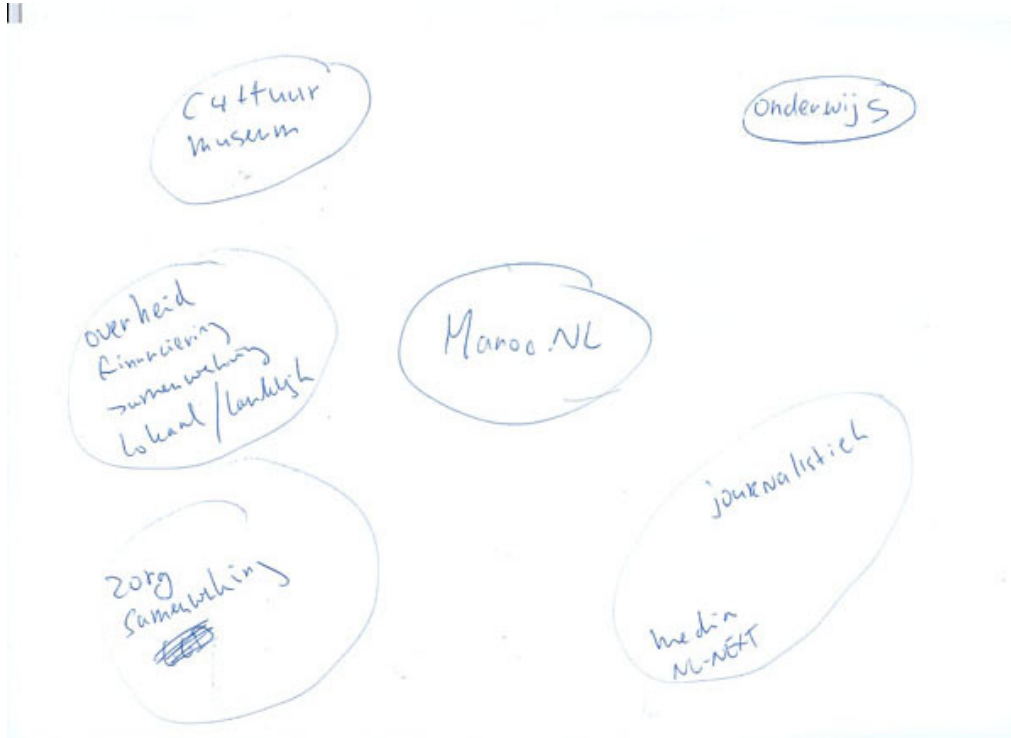 Cultuur
museum
onderwijs
overheid
financiering
samenwerking
lokaal/landelijk
Maroc.NL
zorg
samenwerking
journalistiek
media
NL-NEXT